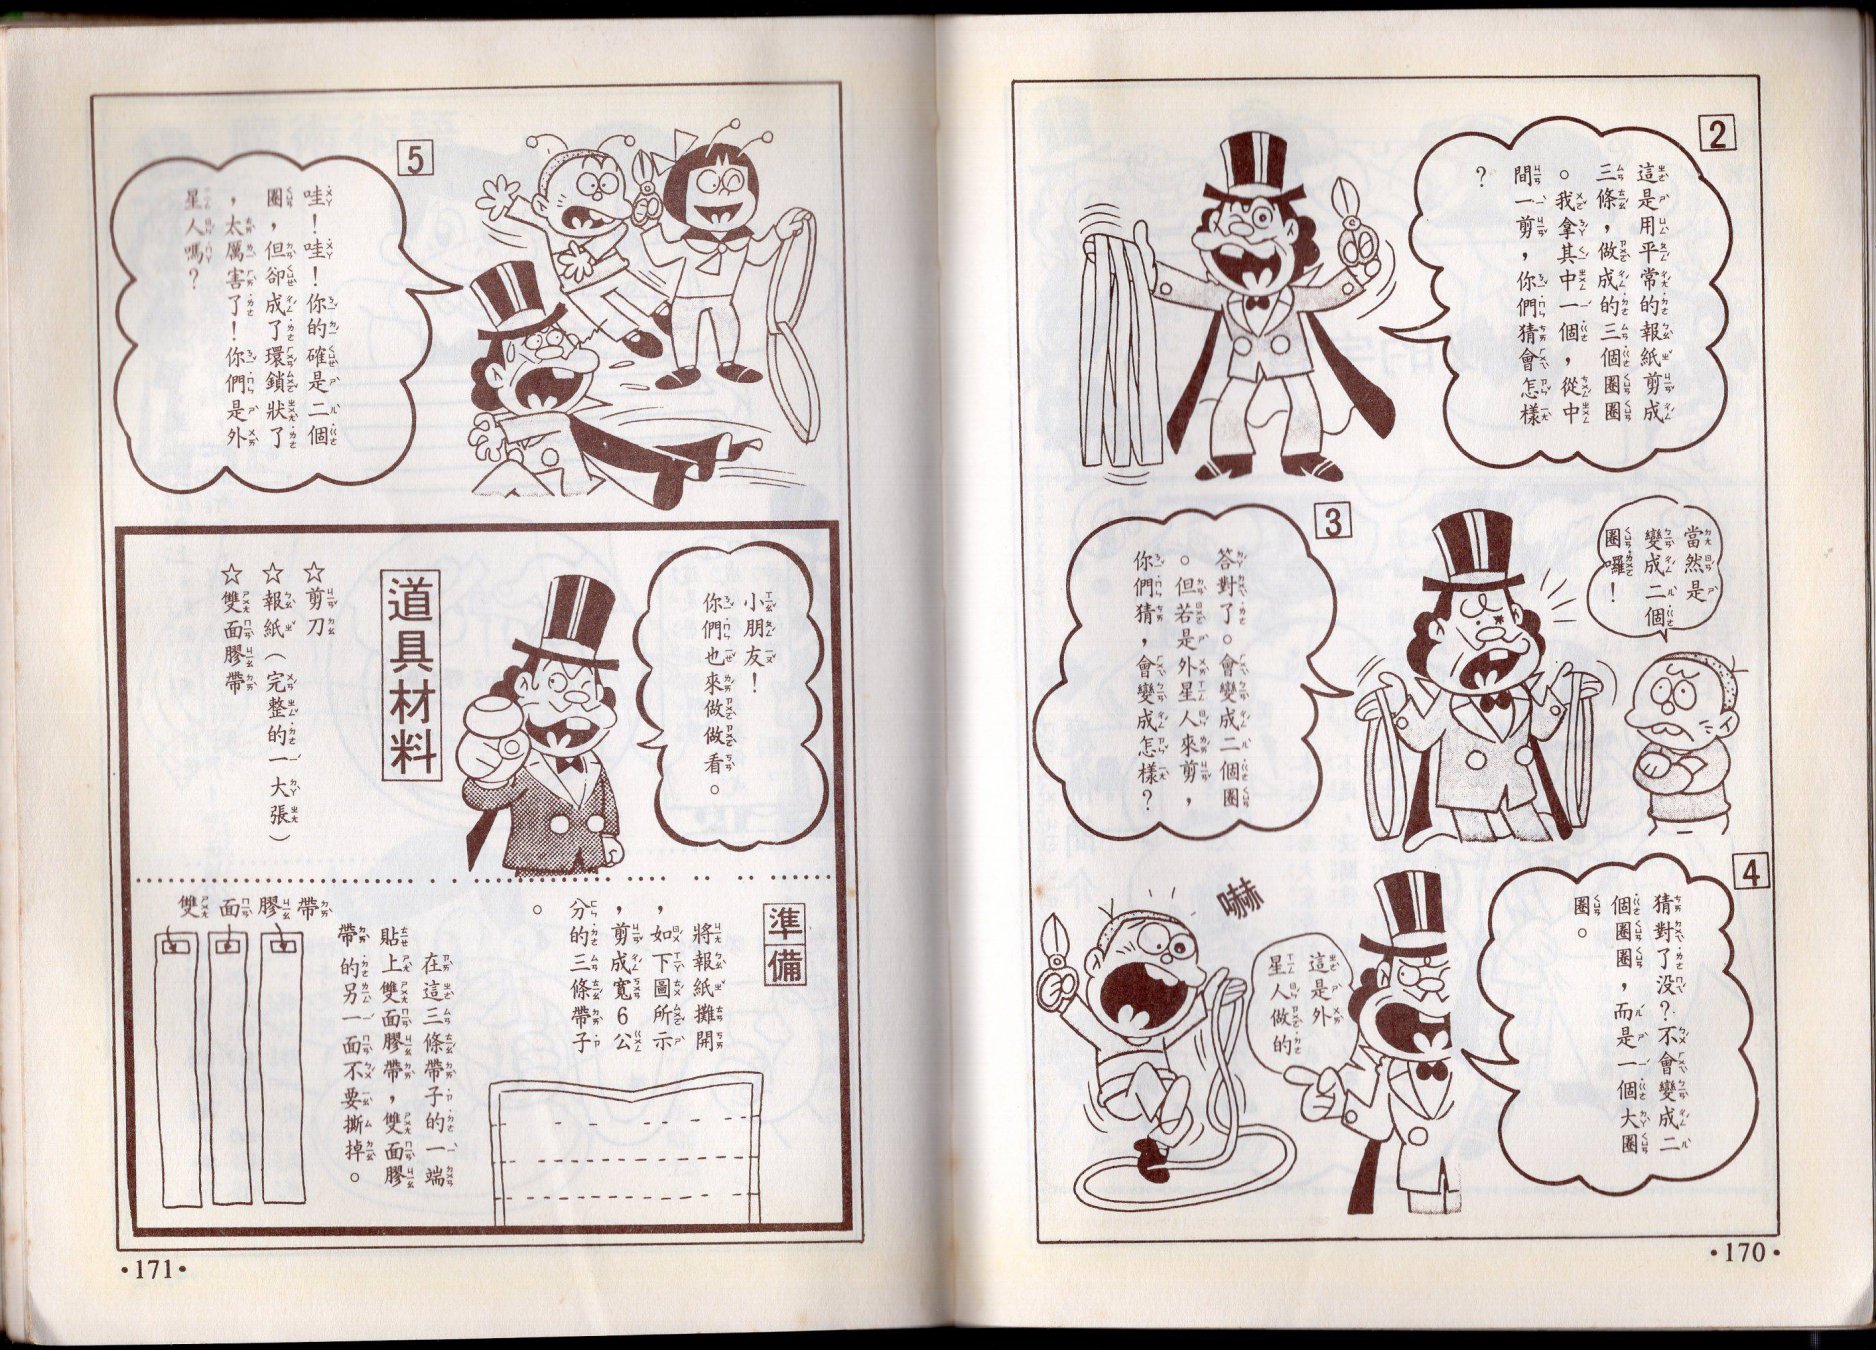 2
這是用平常的報紙剪成
三條，做成的三個圈圈
。我拿其中一個，從中
間一剪，你們猜會怎樣
？
當然是
變成二個
圈囉！
3
答對了。會變成二個圈
。但若是外星人來剪，
你們猜，會變成怎樣？
4
猜對了沒？不會變成二
個圈圈，而是一個大圈
圈。
這是外
星人做的
嚇
·170·
5
哇！哇！你的確是二個
圈，但卻成了環鎖狀了
，太厲害了！你們是外
星人嗎？
小朋友！
你們也來做做看。
道具材料
☆剪刀
☆報紙（完整的一大張）
☆雙面膠帶
準備
將報紙攤開
，如下圖所示
，剪成寬6公
分的三條帶子
。
在這三條帶子的一端
貼上雙面膠帶，雙面膠
帶的另一面不要撕掉。
雙面膠帶
·171·